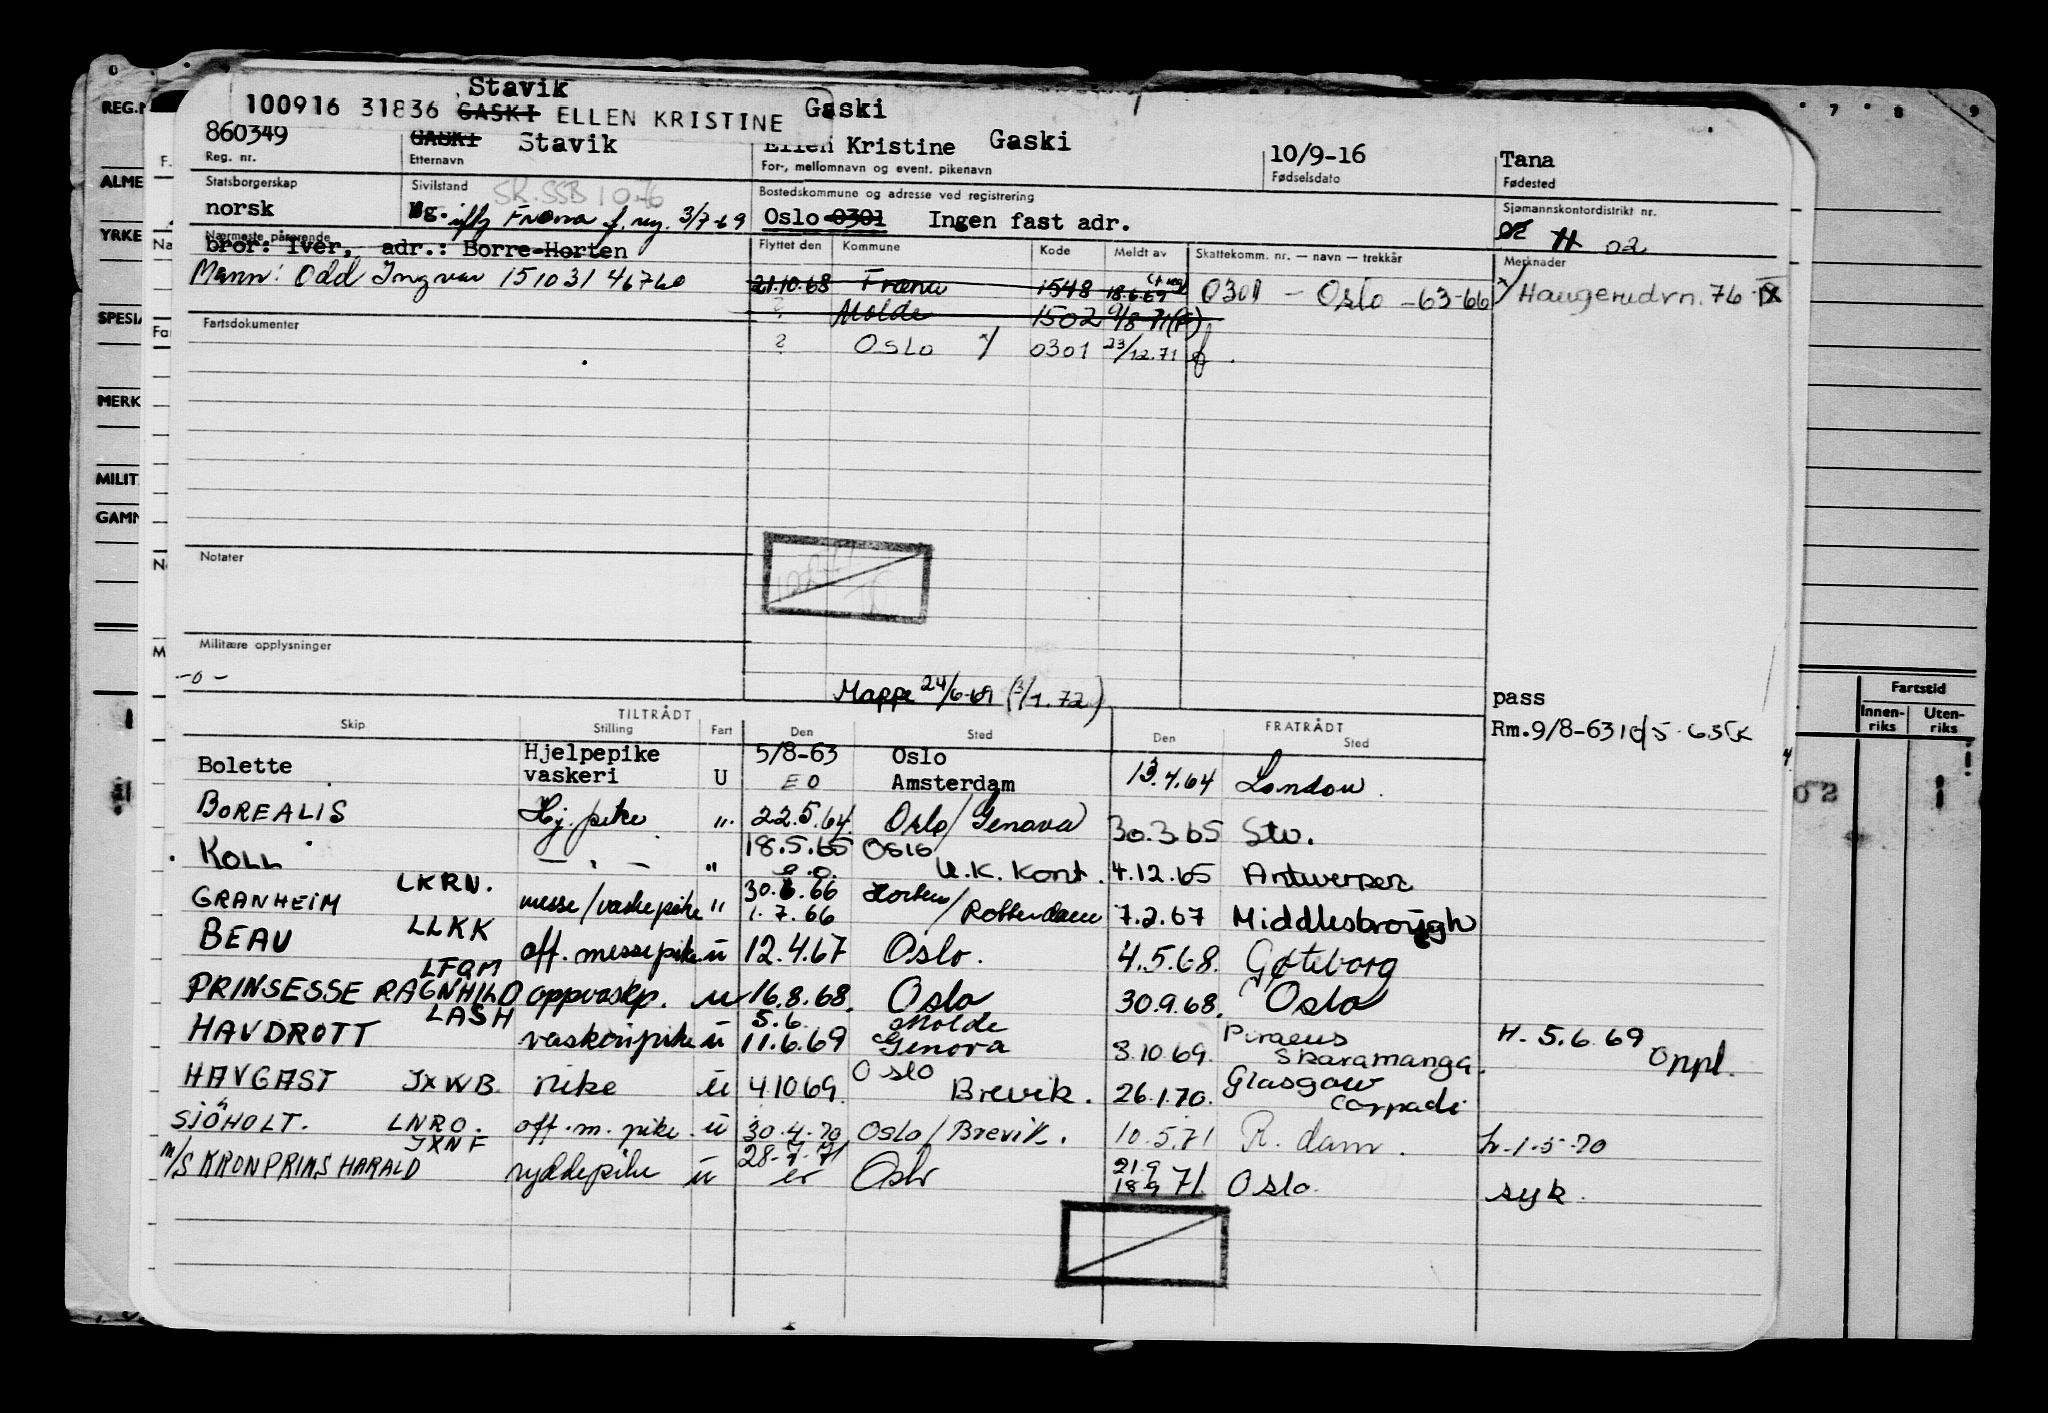 Stavik
100916 31836 GASKI ELLEN KRISTINE Gaski
860349 GASKI Stavik Ellen Kristine Gaski 10/9-16 Tana
Reg. nr. Etternavn For-, mellomnavn og event. pikenavn Fødselsdato Fødested
Statsborgerskap Sivilstand Bostedskommune og adresse ved registrering Sjømannskontordistrikt nr.
norsk Ug. Fræna f. reg. 3/7-69 Oslo 0301 Ingen fast adr. 02 11 02
Nærmeste pårørende Flyttet den Kommune Kode Meldt av Skattekomm. nr. — navn — trekkår Merknader
bror: Iver, adr.: Borre-Horten
Mann: Odd Ingvar 151031 46760 21.10.68 Fræna 1548 18.6.69 0301 - Oslo -63-66 x/ Haugerudvn. 76
? Molde 1502 9/8-71 (F)
Fartsdokumenter ? Oslo x/ 0301 23/12.71 f.
Notater
Militære opplysninger
-0-
Mappe 24/6-69 (3/1.72) pass
TILTRÅDT FRATRÅDT Rm.9/8-63
Skip Stilling Fart Den Sted Den Sted
Bolette Hjelpepike vaskeri U 5/8-63 EO Oslo Amsterdam 13.4.64 London.
BOREALIS Hj. pike " 22.5.64. Oslo/Genova 30.3.65 Stv.
KOLL — " — " 18.5.65 e.o. Oslo U.K. Kont. 4.12.65 Antwerpen
GRANHEIM LKRN. messe/vaskepike " 30.6.66 1.7.66 Horten/Rotterdam 7.2.67 Middlesbrough
BEAU LLKK off. messepike u 12.4.67 Oslo. 4.5.68. Gøteborg
PRINSESSE RAGNHILD LFQM oppvaskp. u 16.8.68. Oslo 30.9.68. Oslo
HAVDROTT LASH vaskeripike u 5.6. 11.6.69 Molde Genova 3.10.69. Piraeus Skaramanga. H. 5.6.69 Oppl.
HAVGAST JXWB pike u 4.10 69. Oslo Brevik. 26.1.70. Glasgow
SJÖHOLT. LNRO. off. m. pike. u 30.4.70 Oslo/Brevik. 10.5.71 R.dam. h. 1-5-70
M/S KRONPRINS HARALD JXNF ryddepike u 28-7-71 eo Oslo 21.9 18.9 71 Oslo. syk.
REG.N
ALME
YRKE
SPESIA
MERK
MILIT
GAMN
7 8 9
Fartstid
Innen-riks Uten-riks